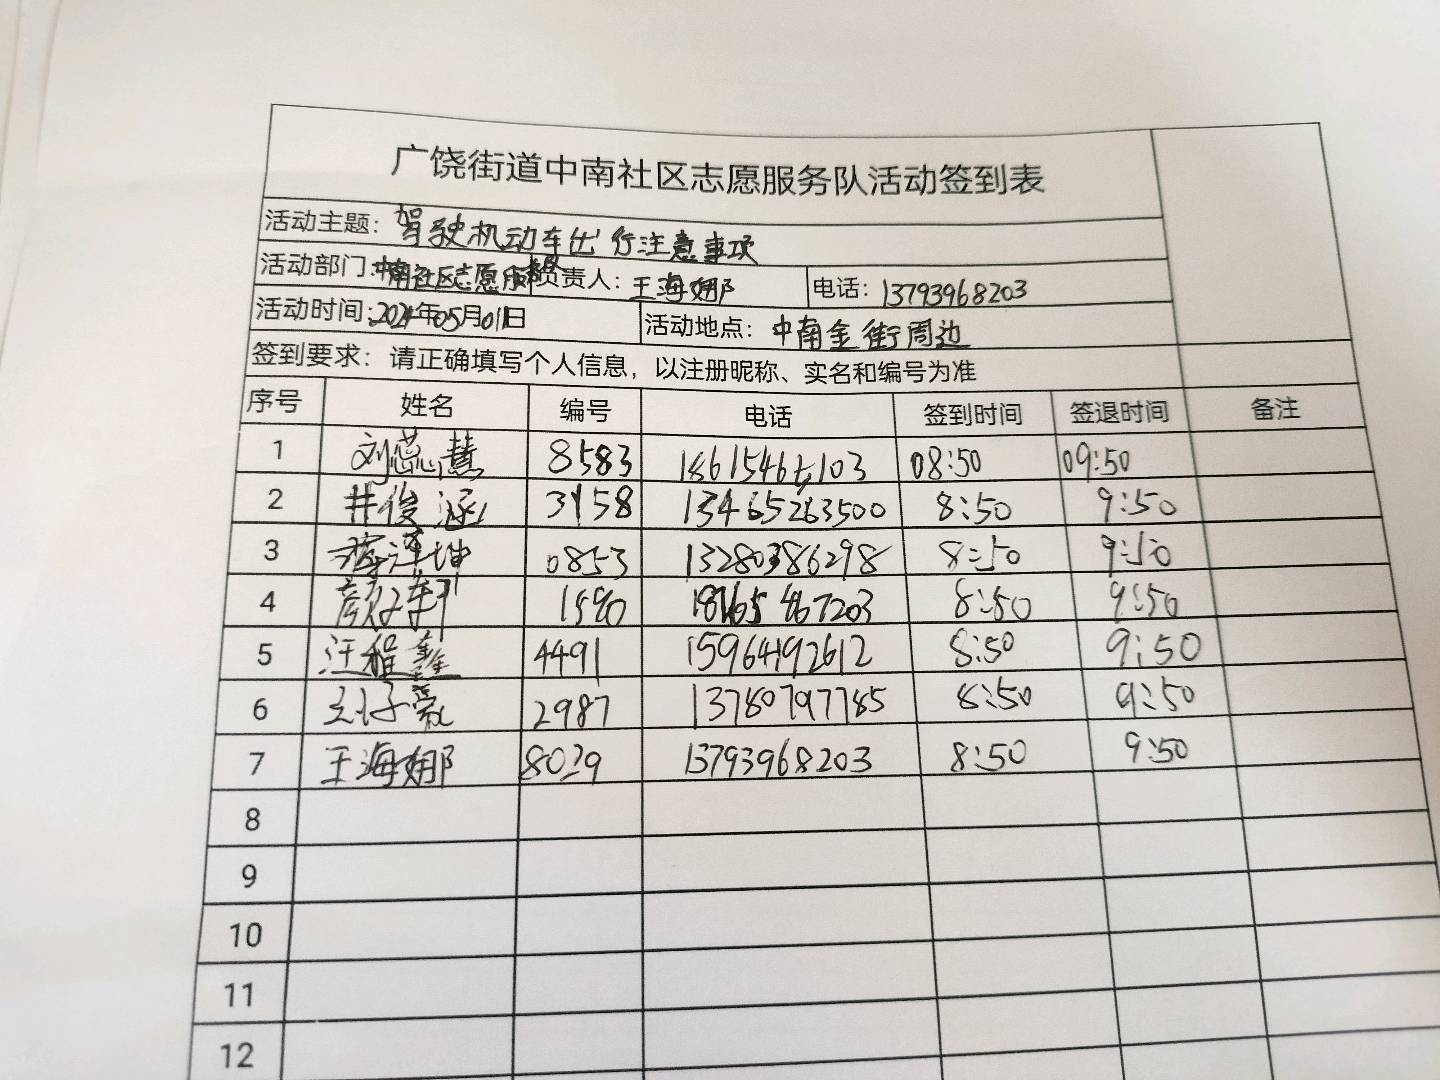 广饶街道中南社区志愿服务队活动签到表
活动主题：驾驶机动车出行注意事项
活动部门：中南社区志愿服务队 负责人：王海娜 电话：13793968203
活动时间：2024年05月01日 活动地点：中南金街周边
签到要求：请正确填写个人信息，以注册昵称、实名和编号为准
序号 姓名 编号 电话 签到时间 签退时间 备注
1 刘蕊慧 8583 08:50 09:50
2 井俊涵 3158 13465263500 8:50 9:50
3 0853 13280386298 8:50 9:50
4 1590 8:50 9:50
5 汪程鑫 4491 15964192612 8:50 9:50
6 2987 13780797785 8:50 9:50
7 王海娜 8029 13793968203 8:50 9:50
8
9
10
11
12